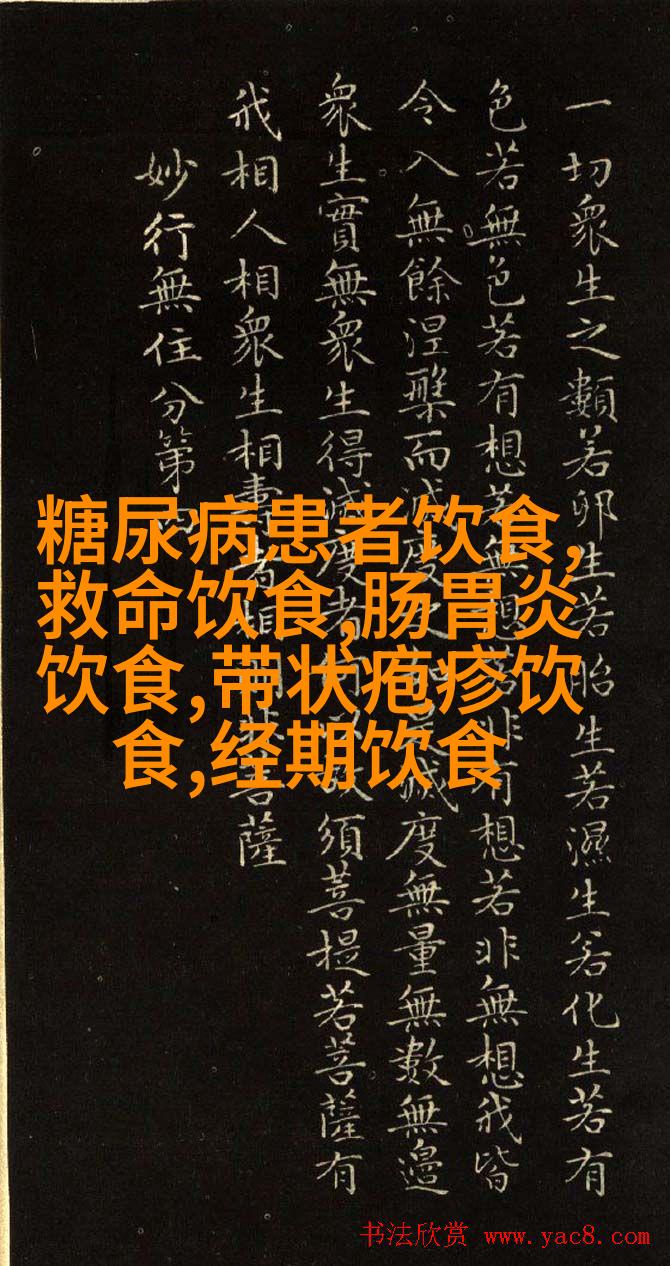 一切衆生之類若卵生若胎生若濕生若化生若有
色若無色若有想若無想若非有想若非無想我皆
令入無餘涅槃而滅度之是滅度無量無數無邊
衆生實無衆生得滅度者何故須菩提若菩薩有
我相人相衆生相壽者相非菩薩
妙行無住分第
糖尿病患者饮食,
救命饮食,肠胃炎
饮食,带状疱疹饮
食,经期饮食
书法欣赏 www.yac8.com